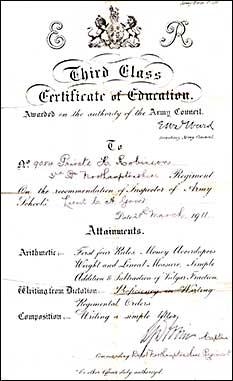 E R
Third Class
Certificate of Education.
Awarded on the authority of the Army Council.
E W D Ward
Secretary, Army Council.
To
No 9054 Private Robinson
Northamptonshire Regiment
On the recommendation of Inspector of Army
Schools,
Date March 1911
Attainments.
Arithmetic:- First four Rules, Money Avoirdupois
Weight and Lineal Measure, Simple
Addition & Subtraction of Vulgar Fractions
Writing from Dictation:- Proficiency in Writing
Regimental Orders
Composition:- Writing a simple letter
Captain
Commanding Northamptonshire Regiment
Or other officer duly authorized.